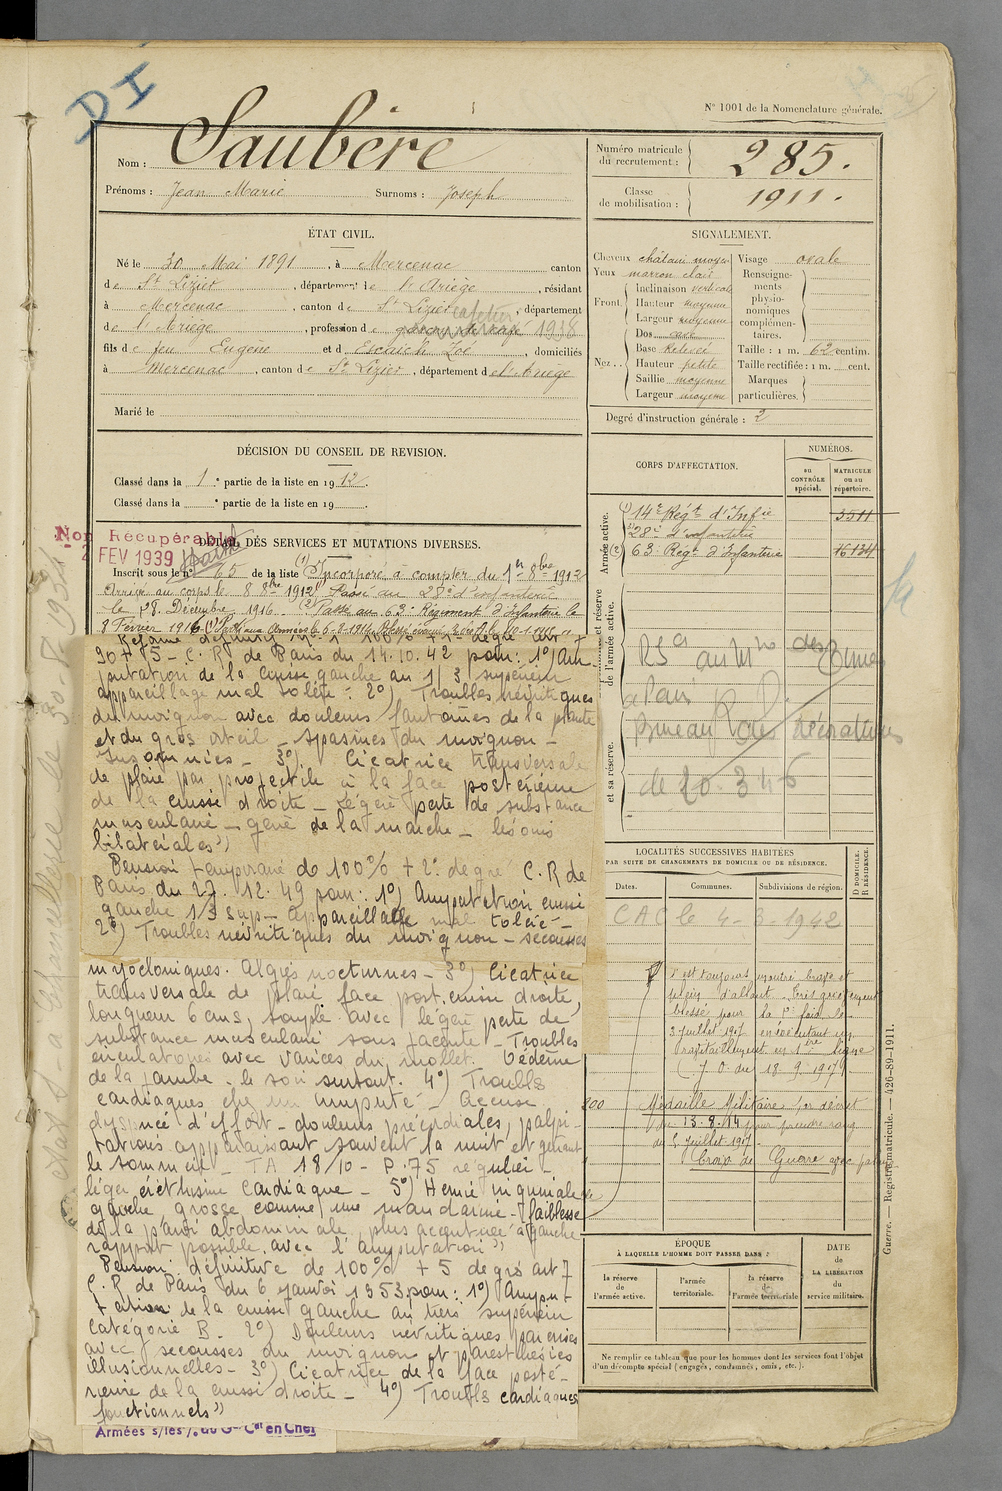 DI
N° 1001 de la Nomenclature générale.
Nom : Saubère
Prénoms : Jean Marie Surnoms : Joseph
Numéro matricule du recrutement : 285.
Classe de mobilisation : 1911.
ÉTAT CIVIL.
Né le 30 Mai 1891, à Mercenac canton
de St Lizier, département de l'Ariège, résidant
à Mercenac, canton de St Lizier, département
de l'Ariège, profession de garçon de café cafetier 1938
fils de feu Eugène et de Escaich Zoé, domiciliés
à Mercenac, canton de St Lizier, département de l'Ariège
Marié le
SIGNALEMENT.
Cheveux châtain moyen
Yeux marron clair
Front. Inclinaison vertical
Hauteur moyenne
Largeur moyenne
Nez.. Dos cave
Base Relevée
Hauteur petite
Saillie moyenne
Largeur moyenne
Visage ovale
Renseignements physionomiques complémentaires.
Taille : 1 m. 62 centim.
Taille rectifiée : 1 m. cent.
Marques particulières.
Degré d'instruction générale : 2
DÉCISION DU CONSEIL DE REVISION.
Classé dans la 1e partie de la liste en 1912.
Classé dans la e partie de la liste en 19
Non Récupérable
FEV 1939
DÉTAIL DES SERVICES ET MUTATIONS DIVERSES.
Inscrit sous le n° 65 de la liste (1) Incorporé à compter du 1er 8bre 1912
Arrivé au corps le 8 8bre 1912 Passé au 28e d'infanterie
le 28 Décembre 1916. (2) Passé au 63e Régiment d'Infanterie le
8 Février 1916
90 + 75 - C.R. de Paris du 14.10.42 pour : 1°) Am
putation de la cuisse gauche au 1/3 supérieur
appareillage mal toléré. 2°) Troubles névritiques
du moignon avec douleurs fantômes de la plante
et du gros orteil - spasmes du moignon -
insomnies - 3°) Cicatrice transversale
de plaie par projectile à la face postérieure
de la cuisse droite - légère perte de substance
musculaire - gêne de la marche - lésions
bilatérales"
Pension temporaire de 100% + 2e degré C.R de
Paris du 27.12.49 pour : 1°) Amputation cuisse
gauche 1/3 sup - appareillage mal toléré -
2°) Troubles névritiques du moignon - secousses
myocloniques. Algies nocturnes - 3°) Cicatrice
transversale de plaie face post. cuisse droite,
longueur 6 cms, souple avec légère perte de
substance musculaire sous jacente - Troubles
circulatoires avec varices du mollet. Oedème
de la jambe. le soir surtout. 4°) Troubles
cardiaques chez un amputé - Accuse
dyspnée d'effort - douleurs précordiales, palpi-
tations apparaissant souvent la nuit et gênant
le sommeil - TA 18/10 - P.75 régulier -
léger éréthisme cardiaque - 5°) Hernie inguinale
gauche grosse comme une mandarine - faiblesse
de la paroi abdominale, plus accentuée à gauche
rapport possible, avec l'amputation"
Pension définitive de 100% + 5 degrés art 7
C.R de Paris du 6 janvier 1953 pour : 1°) Ampu-
tation de la cuisse gauche au tiers supérieur
catégorie B - 2°) Douleurs névritiques
avec secousses du moignon et paresthésies
illusionnelles - 3°) Cicatrice de la face posté-
rieure de la cuisse droite - 4°) Troubles cardiaques
fonctionnels"
CORPS D'AFFECTATION.
NUMÉROS.
au CONTRÔLE spécial.
MATRICULE ou au répertoire.
Armée active.
(1) 14e Régt d'Infie 3511
28e d'infanterie
(2) 63e Régt d'Infanterie 16124
et réserve de l'armée active.
et sa réserve.
de 20.3.46
LOCALITÉS SUCCESSIVES HABITÉES
PAR SUITE DE CHANGEMENTS DE DOMICILE OU DE RÉSIDENCE.
Dates. Communes. Subdivisions de région.
D DOMICILE. R RÉSIDENCE.
CAC le 4-3-1942
s'est toujours montré brave et
plein d'allant. Très grièvement
blessé pour la 2e fois le
3 juillet 1917 en exécutant un
ravitaillement en 1ère ligne
(J.O. du 18.9.1917)
Médaille Militaire par décret
du 13.8.17 pour prendre rang
du 5 juillet 1917 -
Croix de Guerre avec palme
ÉPOQUE
À LAQUELLE L'HOMME DOIT PASSER DANS :
la réserve de l'armée active.
l'armée territoriale.
la réserve de l'armée territoriale
DATE de LA LIBÉRATION du service militaire.
Ne remplir ce tableau que pour les hommes dont les services font l'objet
d'un décompte spécial (engagés, condamnés, omis, etc.).
Guerre. — Registre matricule. — 426-89-1911.